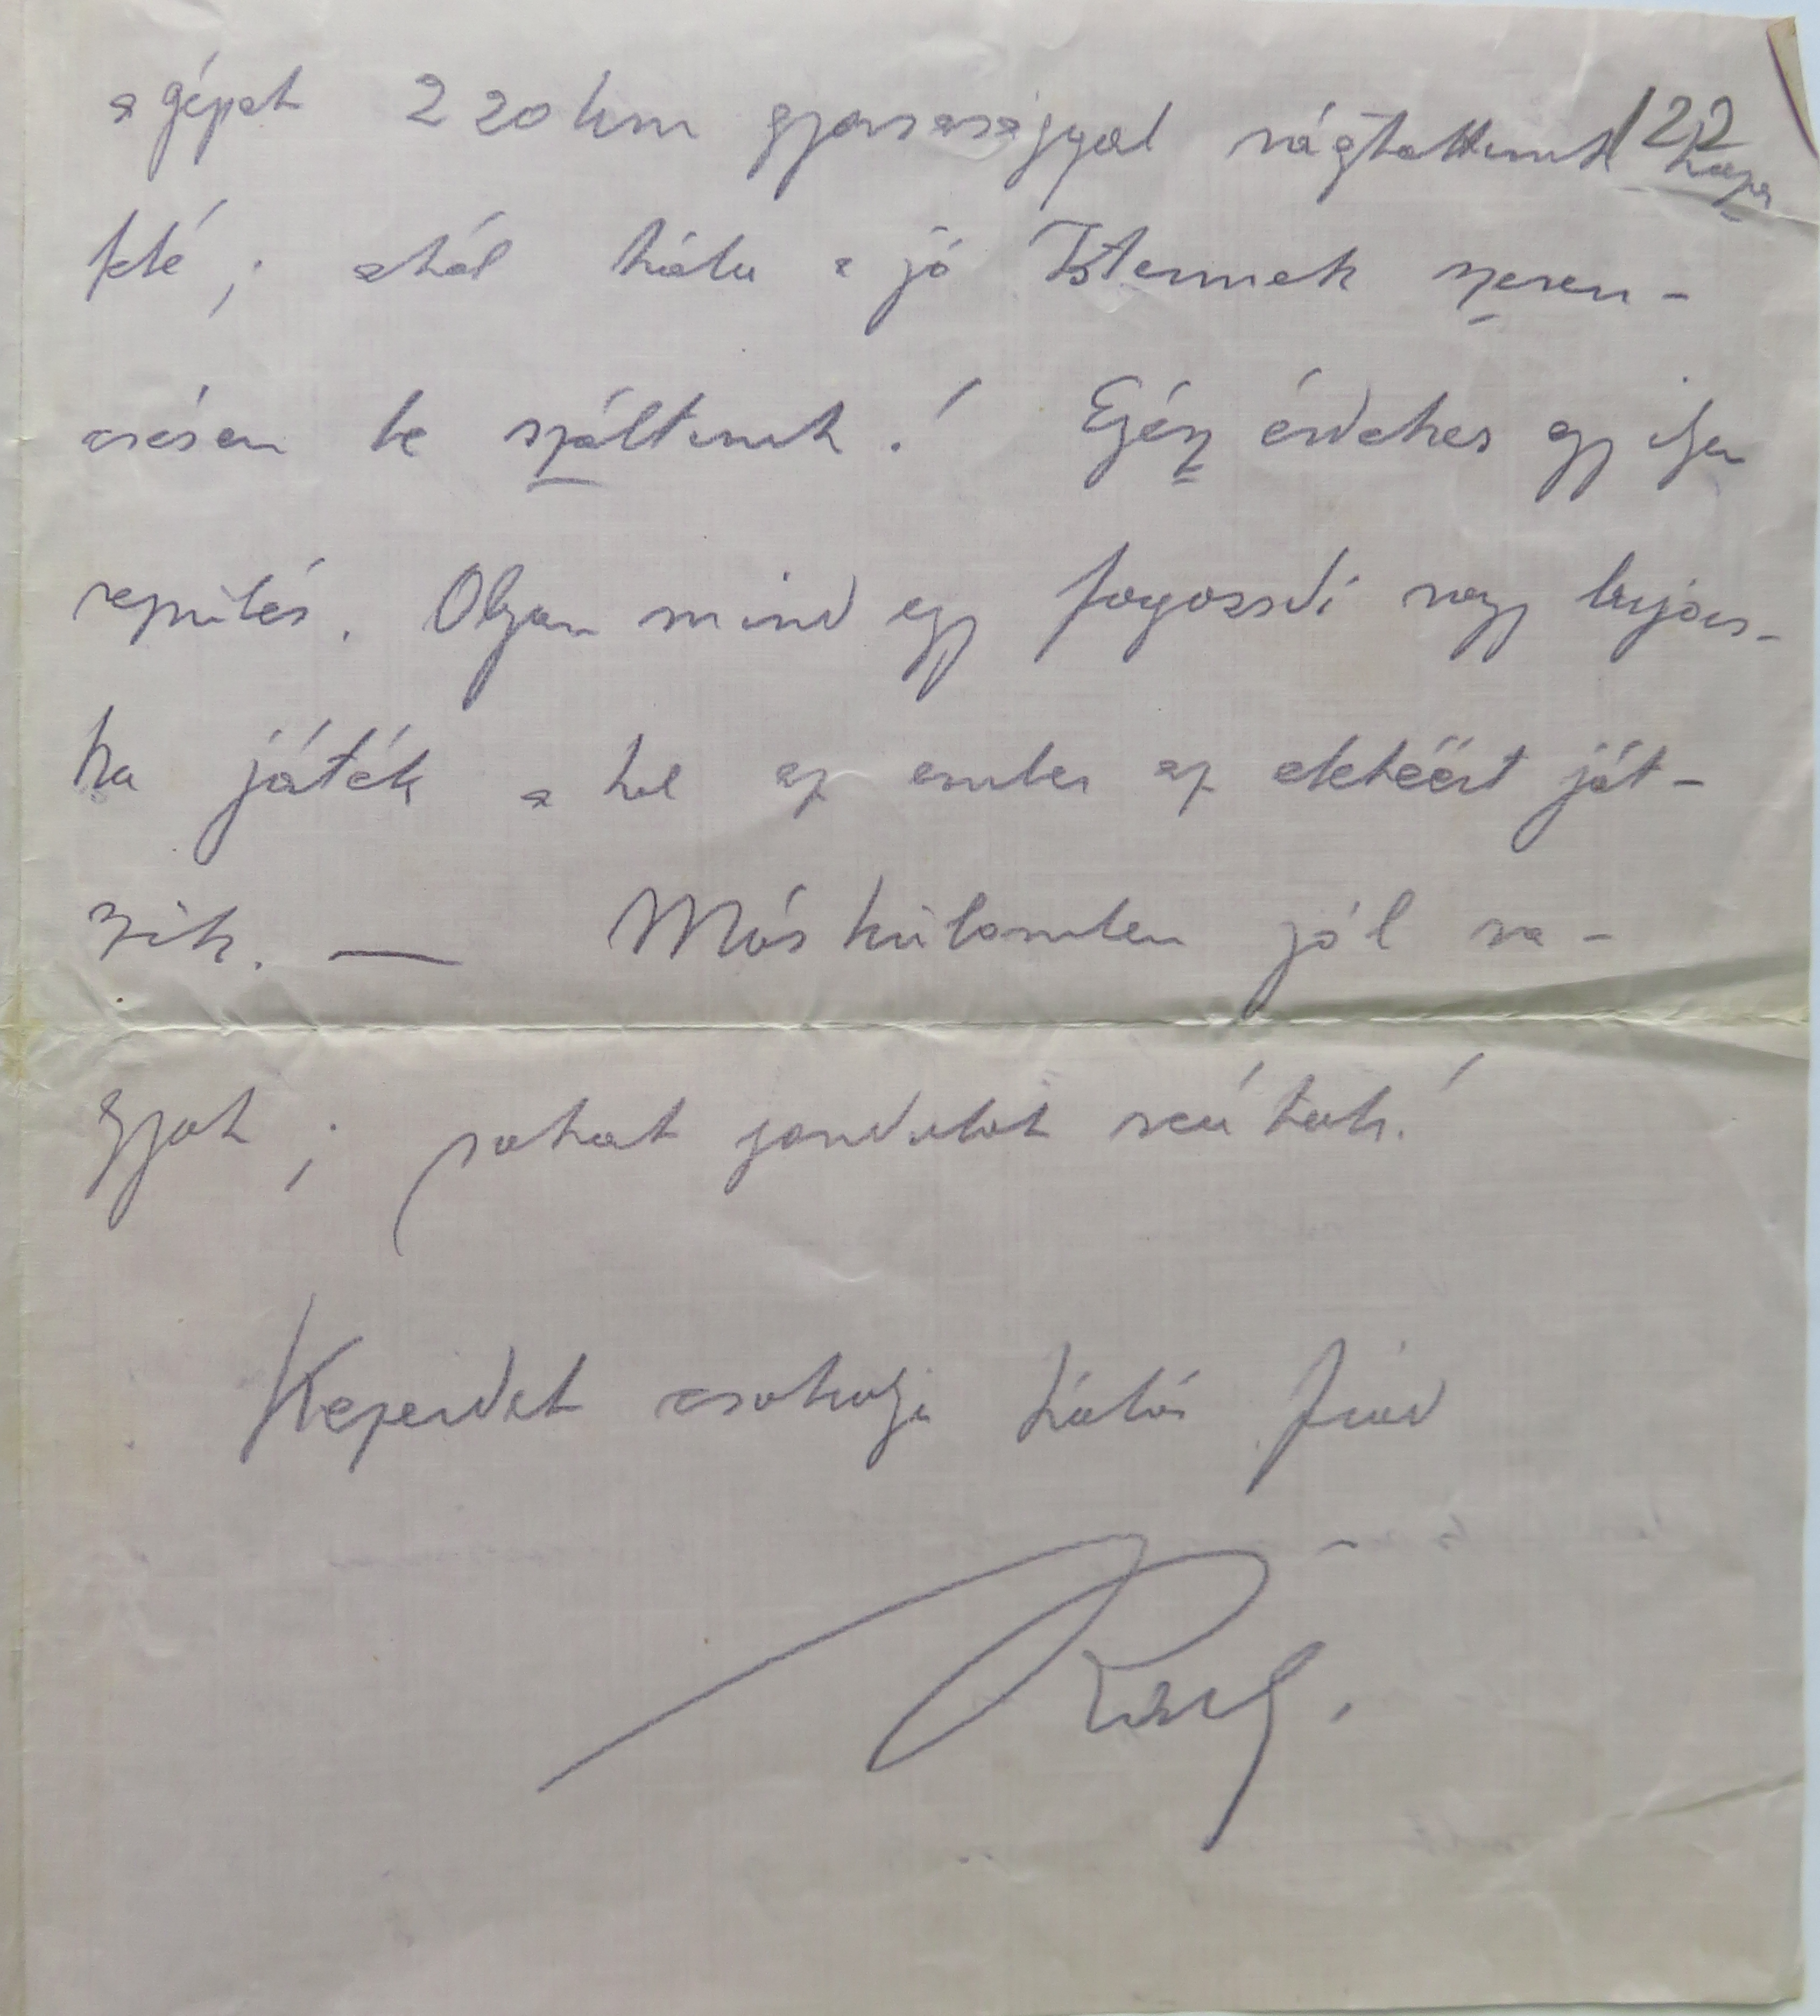 122
a gépet 220 km gyorsasággal vágtattunk haza
felé; ahol hála a jó Istennek szeren-
csésen le száltunk! Egész érdekes egy ilyen
repülés. Olyan mind egy fogossdi vagy bujócs-
ka játék a hol az ember az életéért ját-
szik. — Máskülömben jól va-
gyok; sokat gondolok reátok!
Kezeidet csokolja hálás fiad